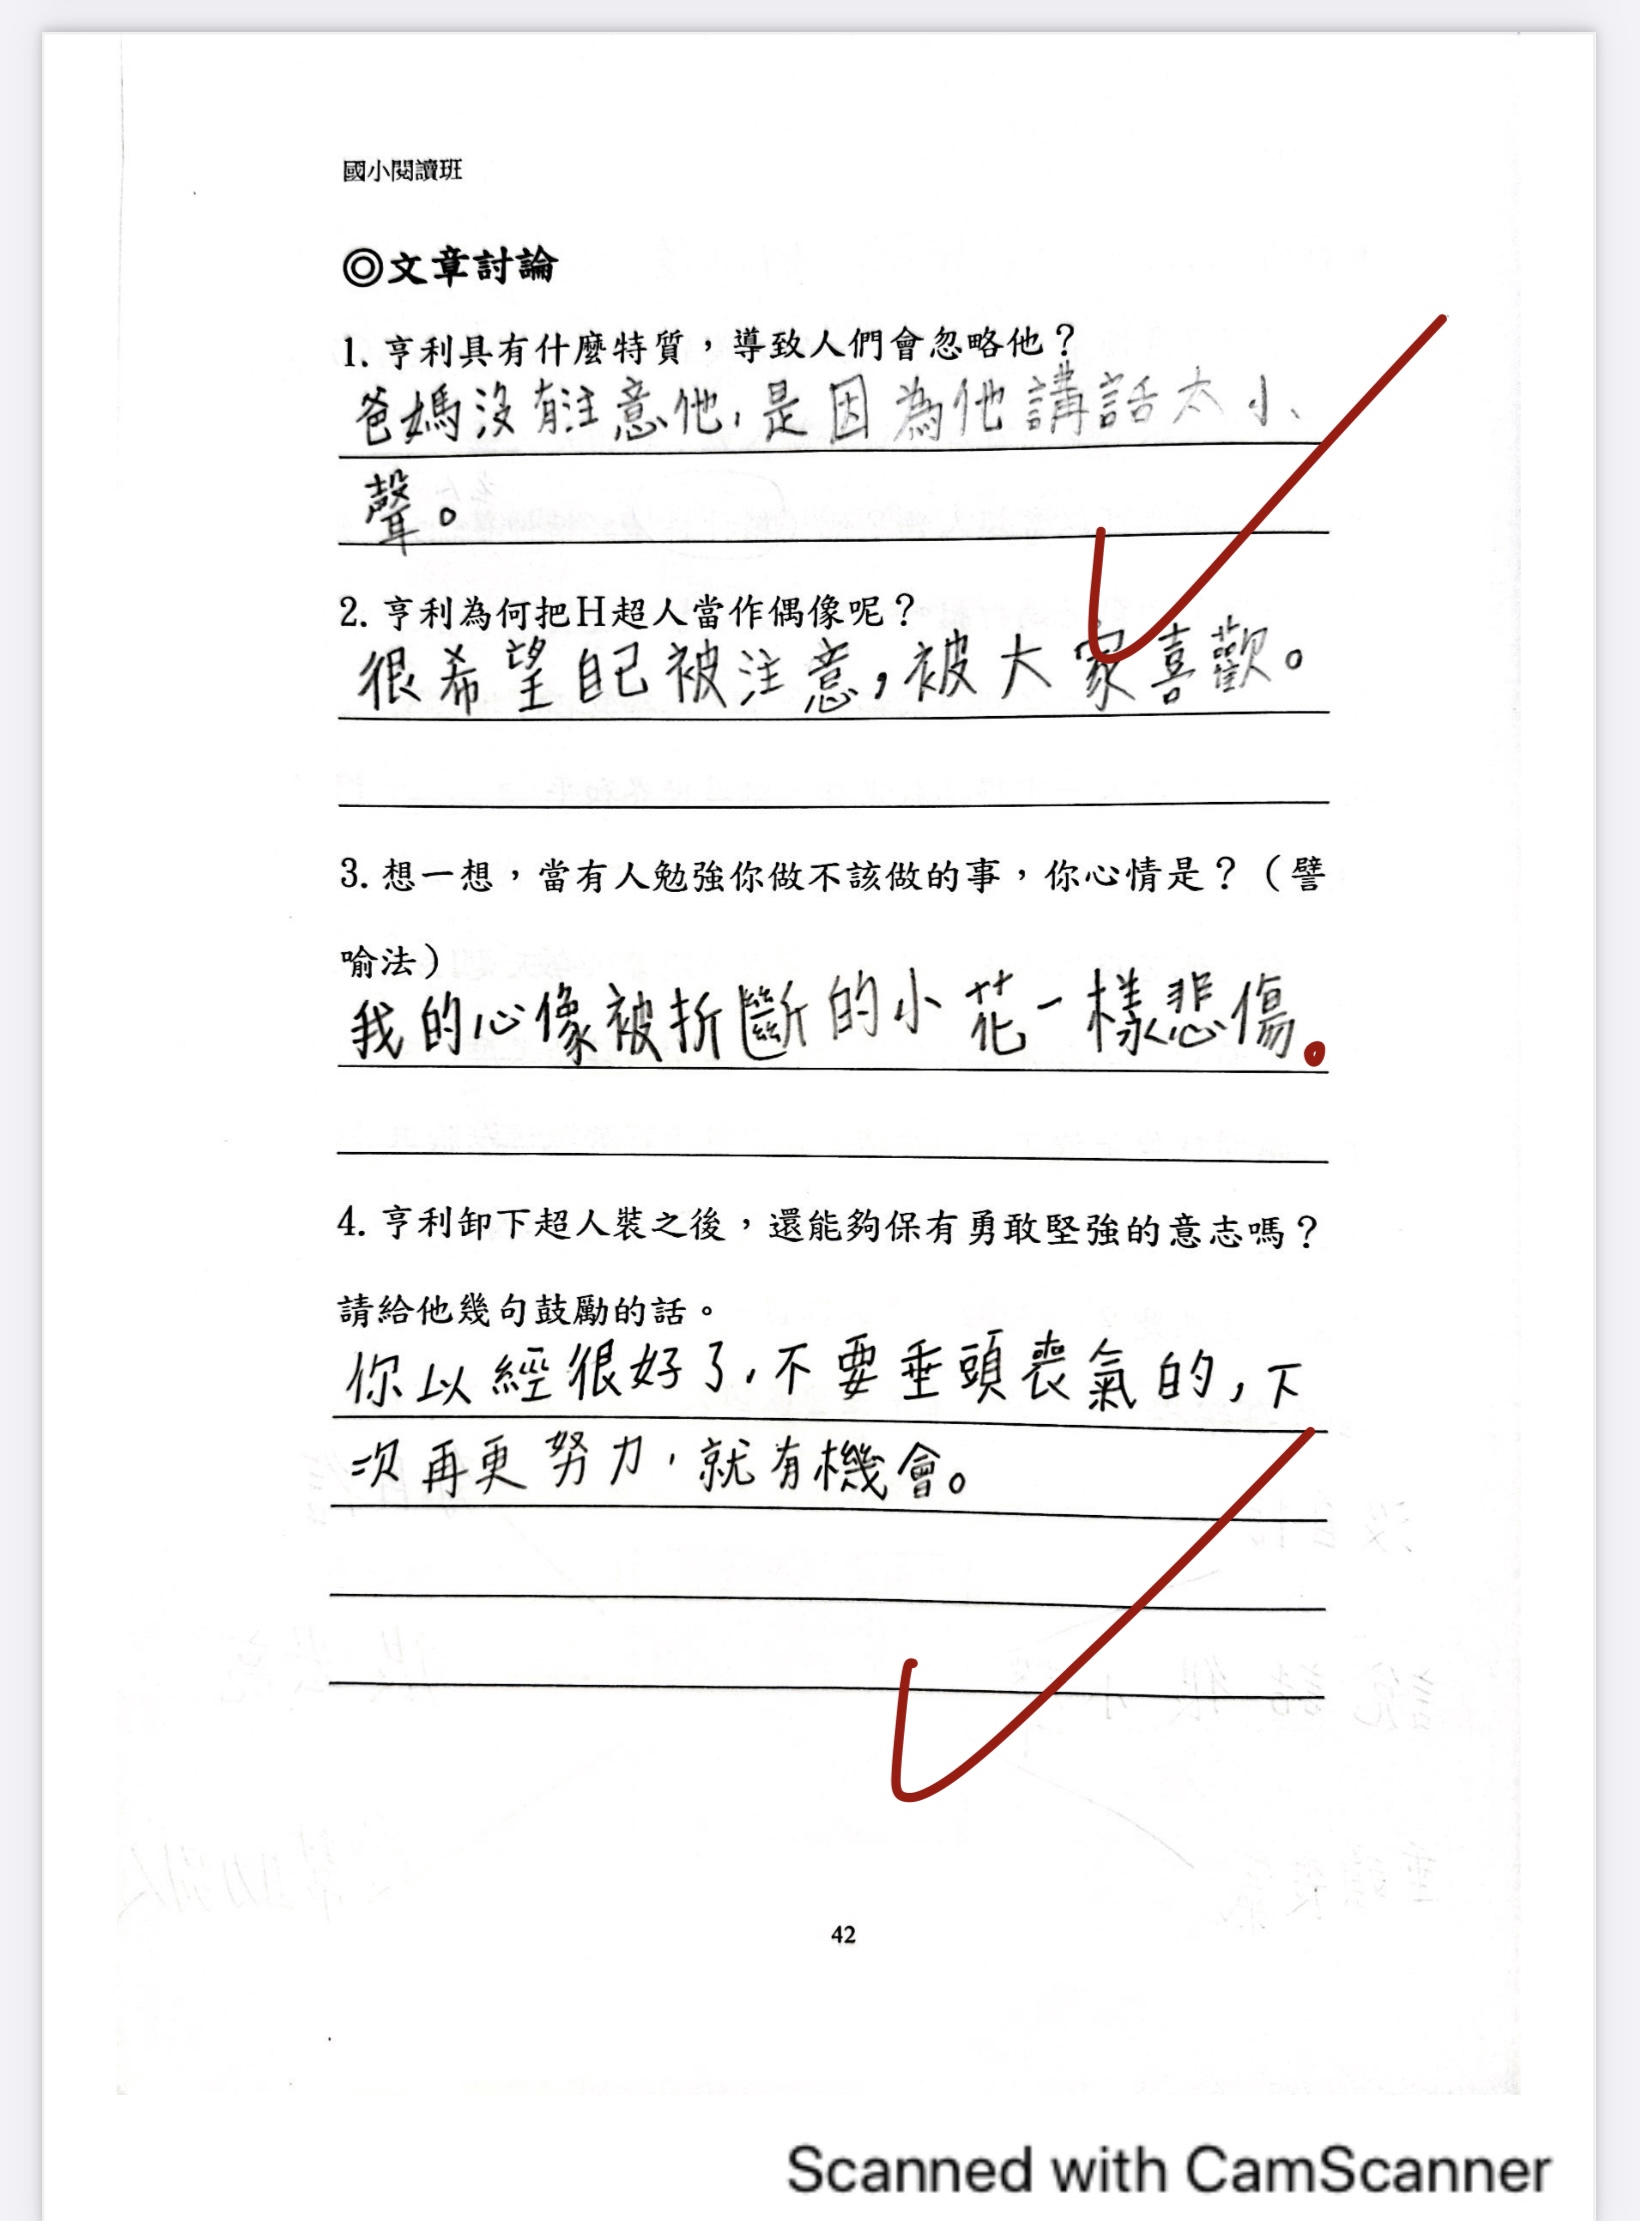 國小閱讀班
◎文章討論
1. 亨利具有什麼特質，導致人們會忽略他？
爸媽沒有注意他，是因為他講話太小
聲。
2. 亨利為何把H超人當作偶像呢？
很希望自己被注意，被大家喜歡。
3. 想一想，當有人勉強你做不該做的事，你心情是？（譬
喻法）
我的心像被折斷的小花一樣悲傷。
4. 亨利卸下超人裝之後，還能夠保有勇敢堅強的意志嗎？
請給他幾句鼓勵的話。
你以經很好了，不要垂頭喪氣的，下
次再更努力，就有機會。
42
Scanned with CamScanner